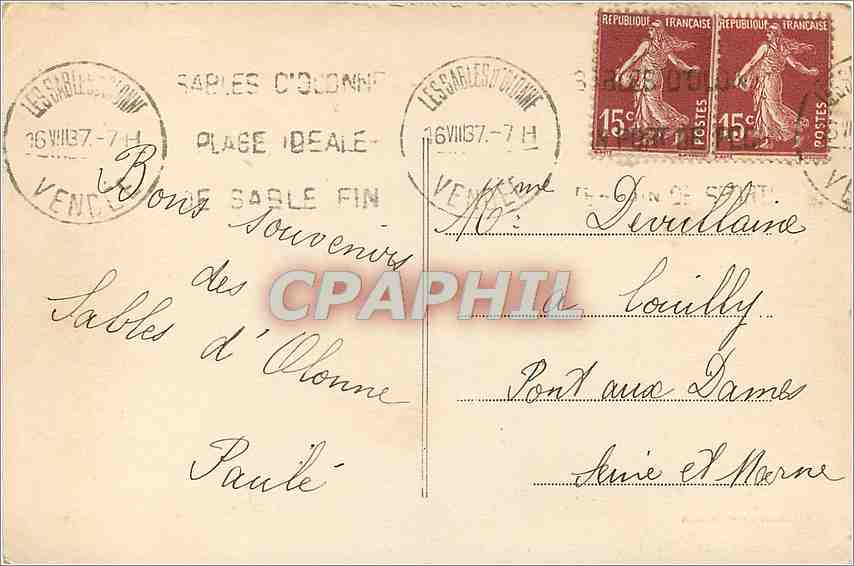 REPUBLIQUE FRANÇAISE
15c
POSTES
REPUBLIQUE FRANÇAISE
15c
POSTES
LES SABLES D'OLONNE
16 VIII 37. - 7 H
VENDÉE
SABLES D'OLONNE
PLAGE IDEALE
DE SABLE FIN
LES SABLES D'OLONNE
16 VIII 37. - 7 H
VENDÉE
SABLES D'OLONNE
Bons souvenirs
des
Sables d'Olonne
Paulé
Mme
à Couilly
Pont aux Dames
Seine et Marne
CPAPHIL